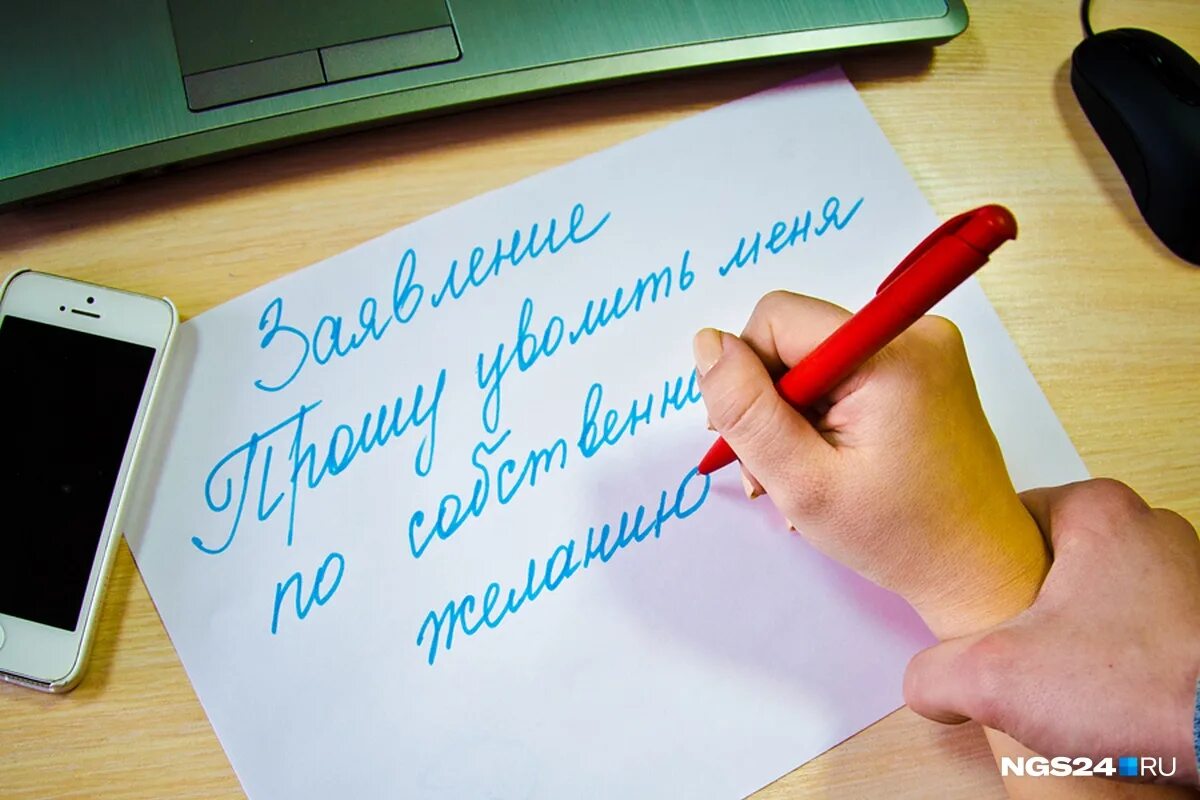 Заявление
Прошу уволить меня
по собственн
желанию
NGS24.RU